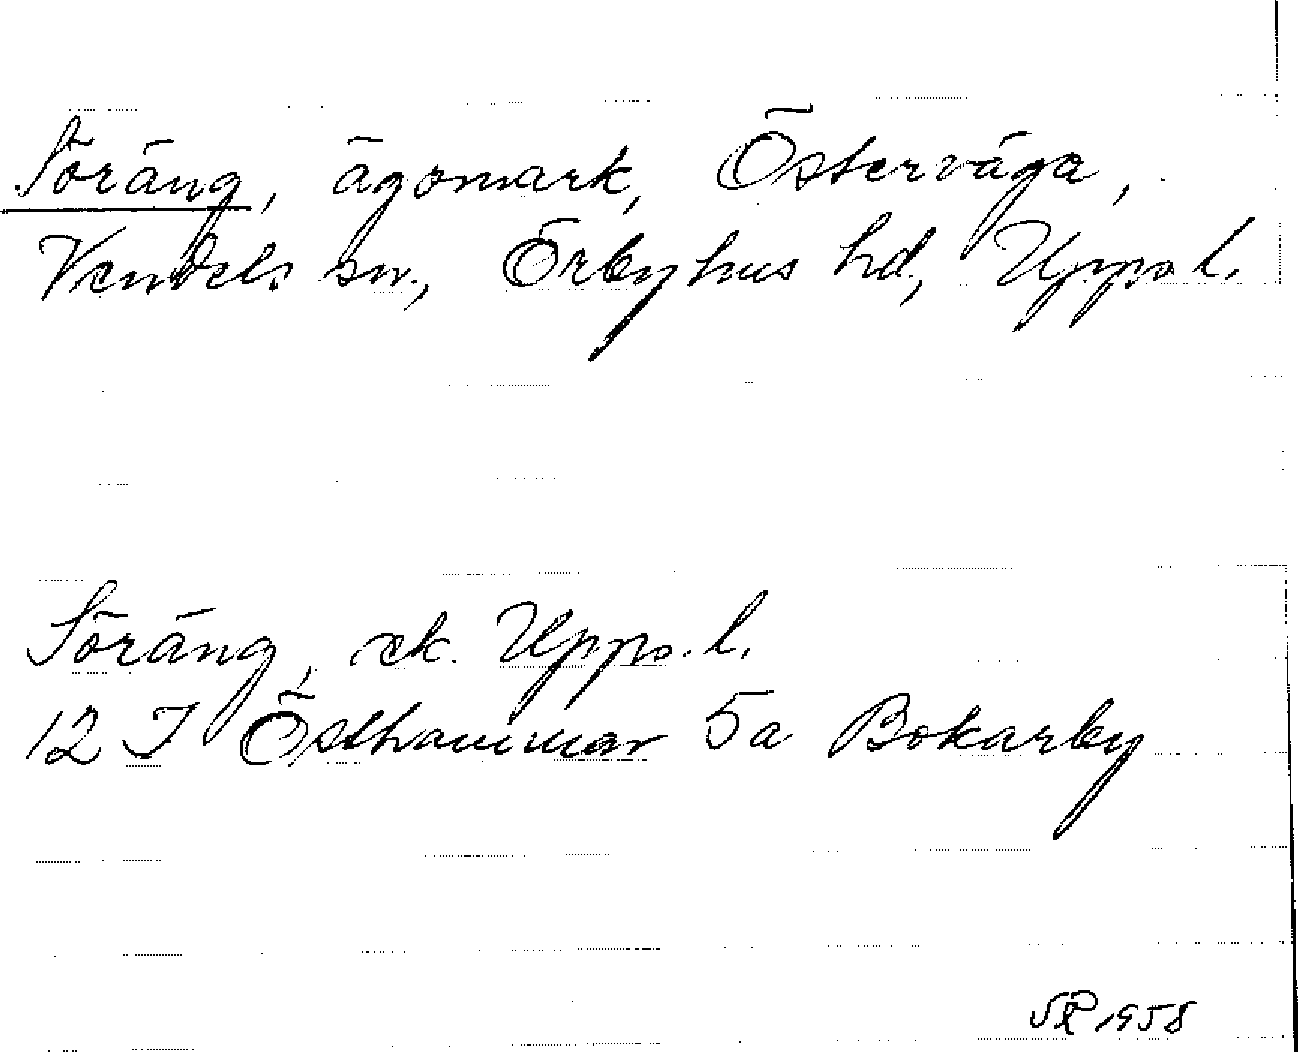 Söräng, ägomark, Österväga,
Vendels sn., Örbyhus hd, Upps. l.
Söräng, ek. Upps. l.
12 I Östhammar 5a Bokarby
1958